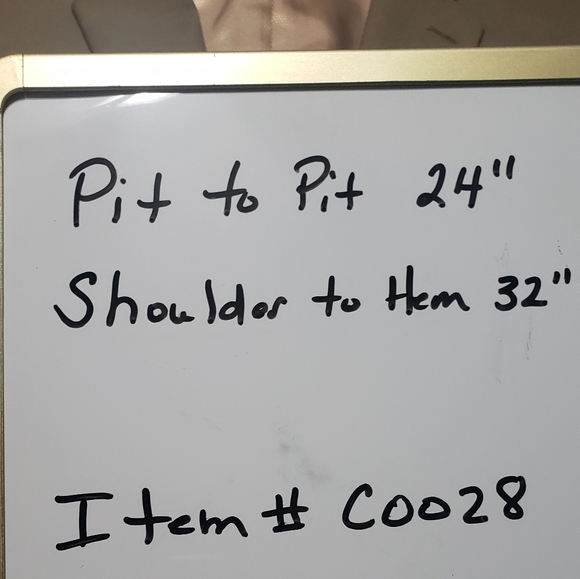 Pit to Pit 24"
Shoulder to Hem 32"
Item # C0028